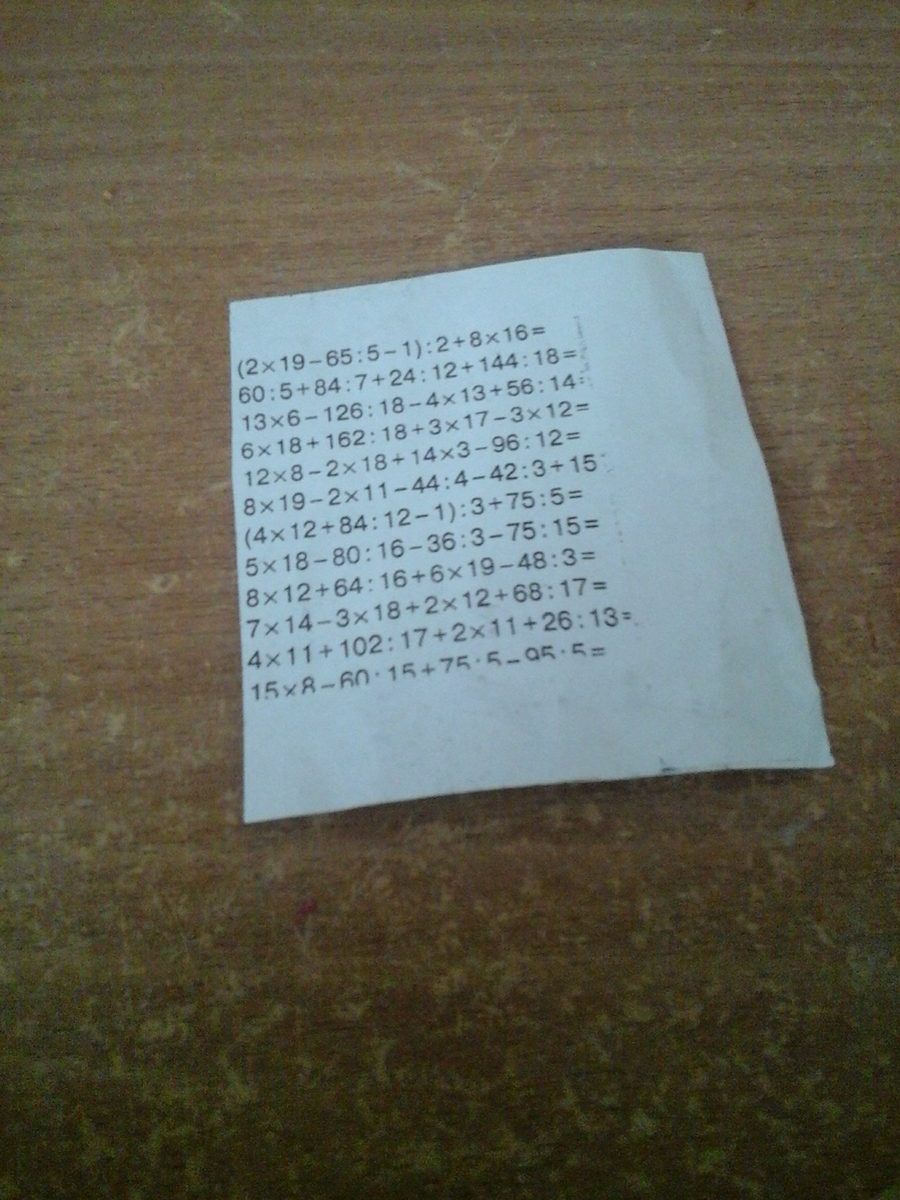 (2×19−65:5−1):2+8×16=
60:5+84:7+24:12+144:18=
13×6−126:18−4×13+56:14=
6×18+162:18+3×17−3×12=
12×8−2×18+14×3−96:12=
8×19−2×11−44:4−42:3+15
(4×12+84:12−1):3+75:5=
5×18−80:16−36:3−75:15=
8×12+64:16+6×19−48:3=
7×14−3×18+2×12+68:17=
4×11+102:17+2×11+26:13=
15×8−60:15+75:5−95:5=